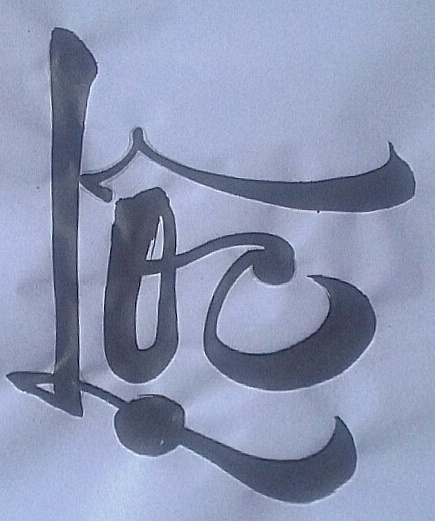 Lộc